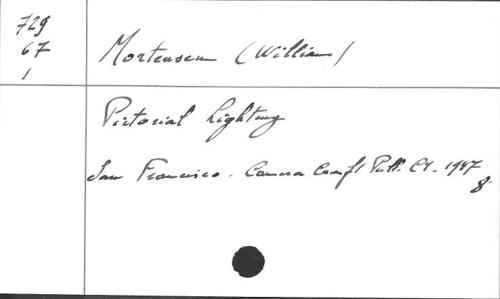 729
67
1
Mortensen (William)
Pictorial Lighting
San Francisco. Camera Craft Publ. Cy. 1947
8°